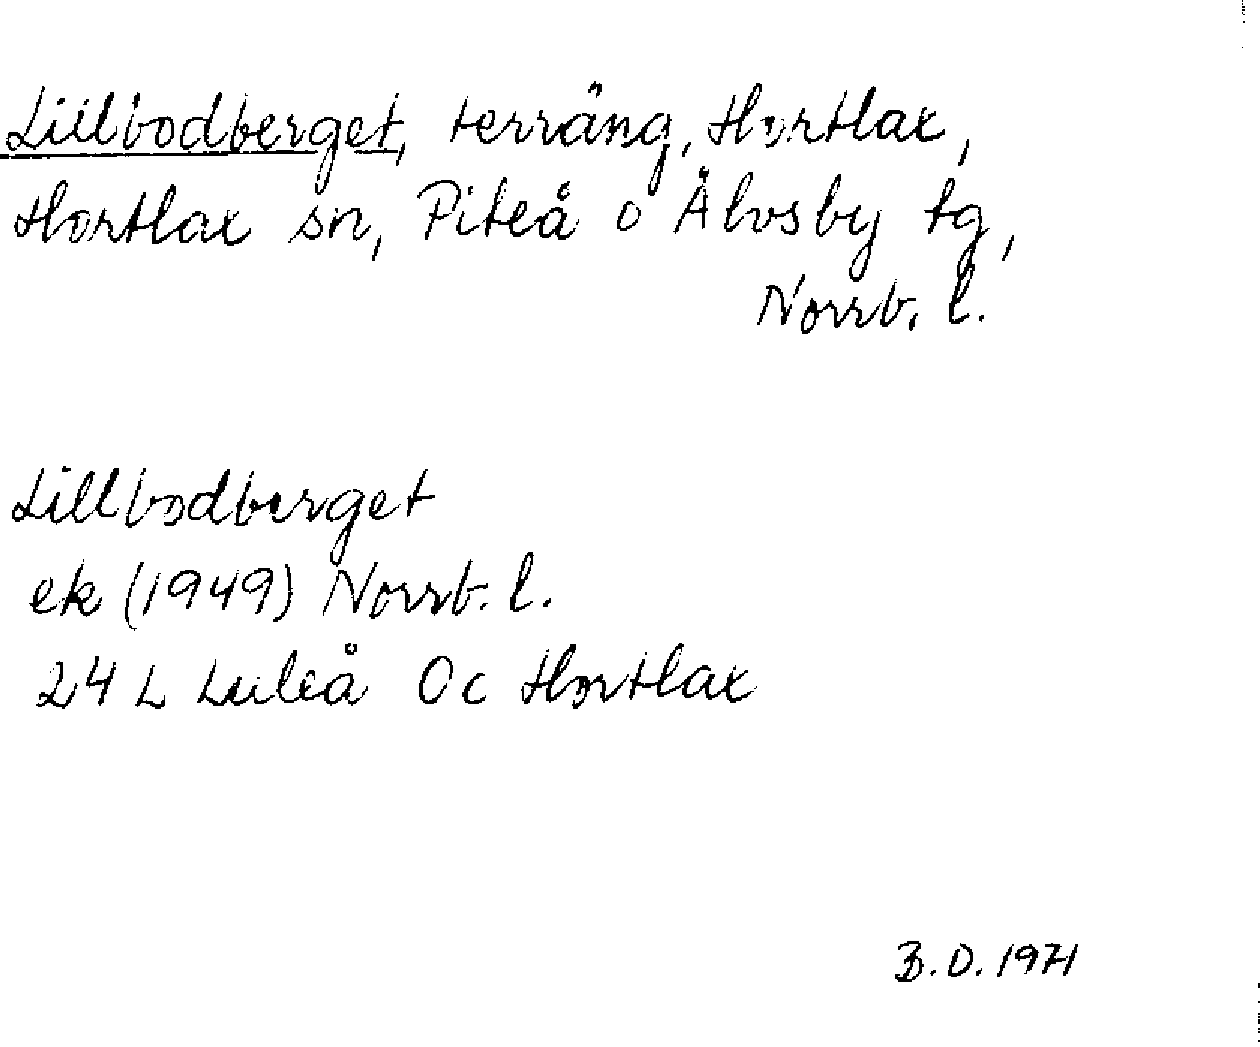 Lillbodberget, terräng, Hortlax,
Hortlax sn, Piteå o Älvsby tg,
Norrb. l.
Lillbodberget
ek (1949) Norrb. l.
24 L Luleå 0c Hortlax
B.D. 1971